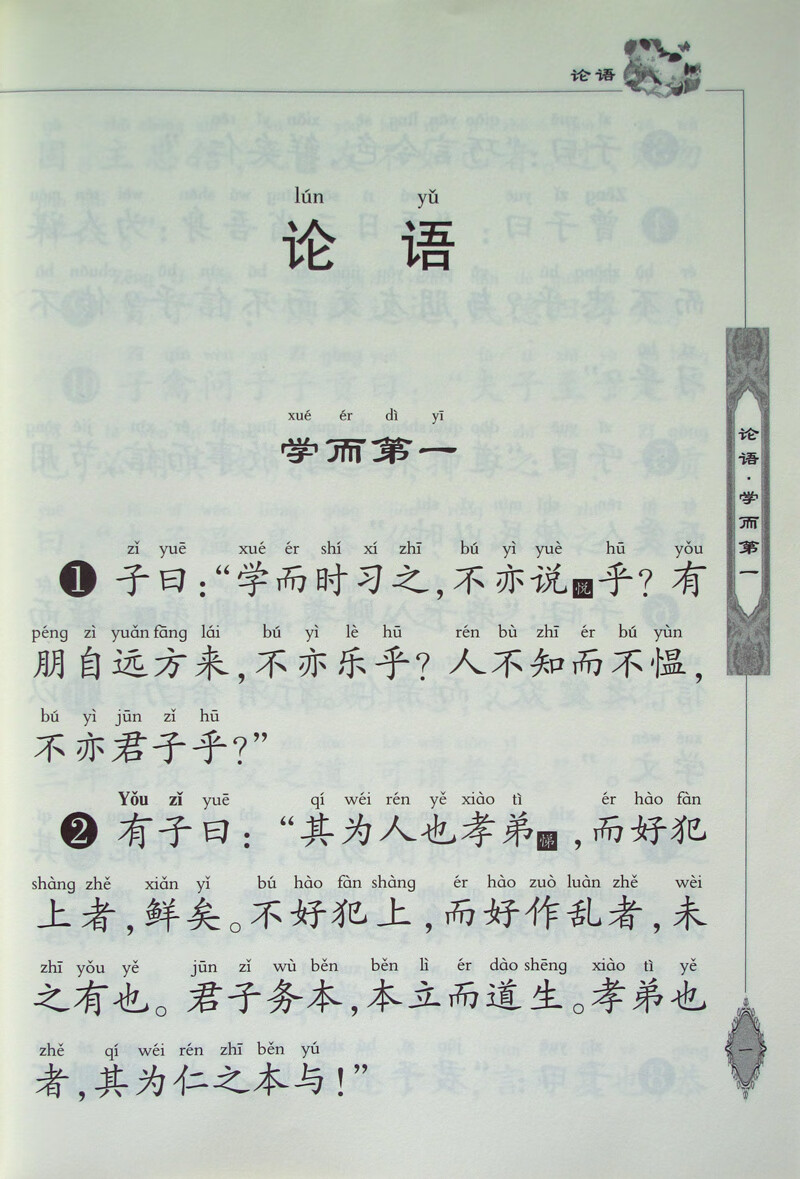 论语
lún yǔ
论 语
xué ér dì yī
学而第一
zǐ yuē xué ér shí xí zhī bú yì yuè hū yǒu
❶ 子曰：“学而时习之，不亦说悦乎？有
péng zì yuǎn fāng lái bú yì lè hū rén bù zhī ér bú yùn
朋自远方来，不亦乐乎？人不知而不愠，
bú yì jūn zǐ hū
不亦君子乎？”
Yǒu zǐ yuē qí wéi rén yě xiào tì ér hào fàn
❷ 有子曰：“其为人也孝弟悌，而好犯
shàng zhě xiǎn yǐ bú hào fàn shàng ér hào zuò luàn zhě wèi
上者，鲜矣。不好犯上，而好作乱者，未
zhī yǒu yě jūn zǐ wù běn běn lì ér dào shēng xiào tì yě
之有也。君子务本，本立而道生。孝弟也
zhě qí wéi rén zhī běn yú
者，其为仁之本与！”
论语·学而第一
一